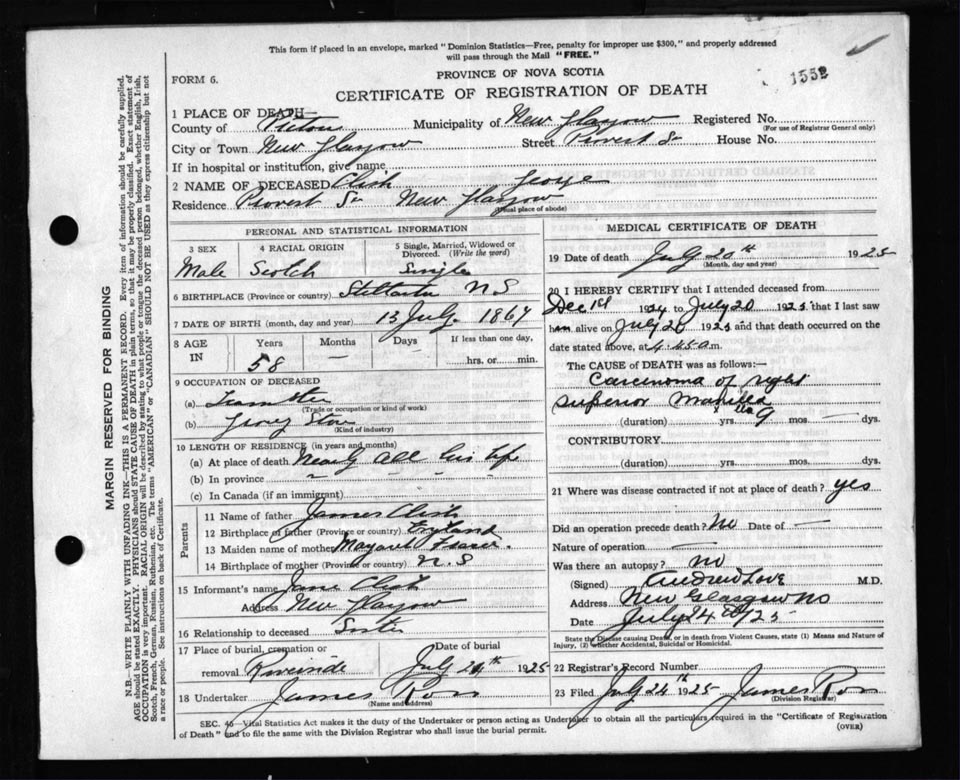 This form if placed in an envelope, marked "Dominion Statistics—Free, penalty for improper use $300," and properly addressed
will pass through the Mail "FREE."
PROVINCE OF NOVA SCOTIA
1552
FORM 6.
CERTIFICATE OF REGISTRATION OF DEATH
1 PLACE OF DEATH
County of Pictou Municipality of New Glasgow Registered No.
(For use of Registrar General only)
City or Town New Glasgow Street Provost St House No.
If in hospital or institution, give name
2 NAME OF DECEASED Clish George
Residence Provost St New Glasgow
(Usual place of abode)
PERSONAL AND STATISTICAL INFORMATION
3 SEX 4 RACIAL ORIGIN 5 Single, Married, Widowed or Divorced. (Write the word)
Male Scotch Single
6 BIRTHPLACE (Province or country) Stellarton N S
7 DATE OF BIRTH (month, day and year) 13 July 1867
8 AGE IN Years Months Days If less than one day,
58 — — hrs. or min.
9 OCCUPATION OF DECEASED
(a) Teamster
(Trade or occupation or kind of work)
(b) Store
(Kind of industry)
10 LENGTH OF RESIDENCE (in years and months)
(a) At place of death Nearly all his life
(b) In province
(c) In Canada (if an immigrant)
Parents
11 Name of father James Clish
12 Birthplace of father (Province or country) England
13 Maiden name of mother Margaret Fraser
14 Birthplace of mother (Province or country) N.S
15 Informant's name Jane Clish
Address New Glasgow
16 Relationship to deceased Sister
17 Place of burial, cremation or removal Riverside Date of burial July 1925
18 Undertaker James Ross
(Name and address)
MEDICAL CERTIFICATE OF DEATH
19 Date of death July 20th 1925
(Month, day and year)
20 I HEREBY CERTIFY that I attended deceased from
Dec 1st 1924 to July 20 1925 that I last saw
him alive on July 20 1925 and that death occurred on the
date stated above, at 4.45 a.m.
The CAUSE OF DEATH was as follows:
Carcinoma of right
superior Maxilla
(duration) yrs. 9 mos. — dys.
CONTRIBUTORY
(duration) yrs. mos. dys.
21 Where was disease contracted if not at place of death? yes
Did an operation precede death? No Date of —
Nature of operation —
Was there an autopsy? no
(Signed) Andrew Love M.D.
Address New Glasgow NS
Date July 24th/25
State the Disease causing Death, or in death from Violent Causes, state (1) Means and Nature of
Injury, (2) whether Accidental, Suicidal or Homicidal.
22 Registrar's Record Number
23 Filed July 24th 1925 James Ross
(Division Registrar)
SEC. 46—Vital Statistics Act makes it the duty of the Undertaker or person acting as Undertaker to obtain all the particulars required in the "Certificate of Registration
of Death" and to file the same with the Division Registrar who shall issue the burial permit.
(OVER)
MARGIN RESERVED FOR BINDING
N.B.—WRITE PLAINLY WITH UNFADING INK—THIS IS A PERMANENT RECORD. Every item of information should be carefully supplied.
AGE should be stated EXACTLY. PHYSICIANS should STATE CAUSE OF DEATH in plain terms, so that it may be properly classified. Exact statement of
OCCUPATION is very important. RACIAL ORIGIN will be described by stating to what people or tongue the deceased person belonged, whether English, Irish,
Scotch, French, German, Russian, Ruthenian, etc. The terms "AMERICAN" or "CANADIAN" SHOULD NOT BE USED as they express citizenship but not
a race or people. See instructions on back of Certificate.